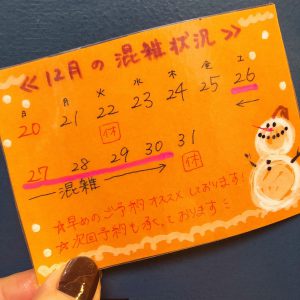 ≪12月の混雑状況≫
日 月 火 水 木 金 土
20 21 22 23 24 25 26
休
27 28 29 30 31
混雑 休
☆早めのご予約オススメしております!
☆次回予約も承っております